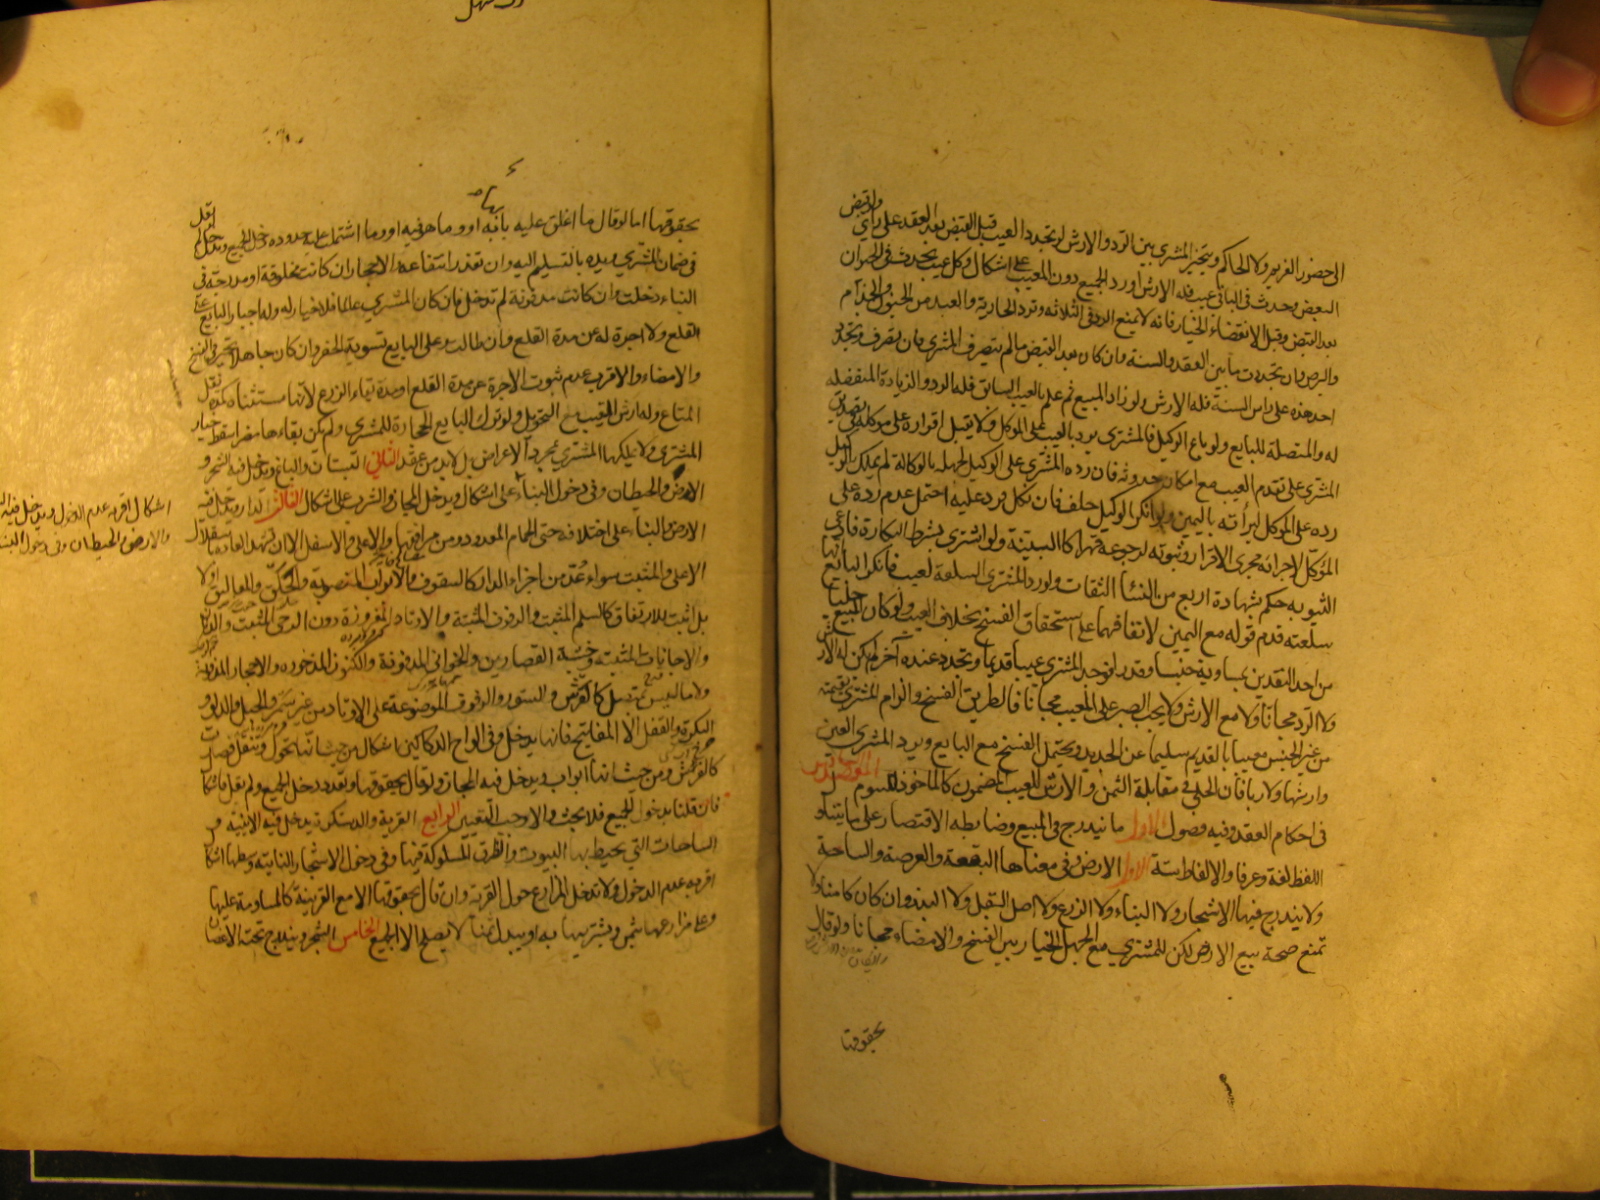 الى حضور الغريم ولا الحاكم ويتخير المشتري بين الرد والارش لو تجدد العيب قبل القبض بعد العقد على راي ولو قبض
البعض وحدث في الباقي عيب فله الارش او رد الجميع دون المعيب على اشكال وكل عيب يحدث في الحيوان
بعد القبض وقبل انقضاء الخيار فانه لا يمنع الرد في الثلاثة وترد الجارية والعبد من الجنون والجذام
والبرص وان تجددت ما بين العقد والسنة وان كان بعد القبض ما لم يتصرف المشتري فان تصرف وتجدد
احد هذه على راس السنة فله الارش ولو زاد المبيع ثم علم بالعيب السابق فله الرد والزيادة المنفصلة
له والمتصلة للبايع ولو باع الوكيل فالمشتري يرد بالعيب على الموكل ولا يقبل اقراره على موكله في تصديق
المشتري على تقدم العيب مع امكان حدوثه فان رده المشتري على الوكيل لجهله بالوكالة لم يملك الوكيل
رده على الموكل لبراته باليمين ولو انكر الوكيل حلف فان نكل فرد عليه احتمل عدم رده على
الموكل لاجرائه مجرى الاقرار وثبوته لرجوعه قهرا كالبينة ولو اشترى بشرط البكارة فادعى
الثيوبه حكم بشهادة اربع من النساء الثقات ولو رد المشتري السلعة لعيب فانكر البائع انها
سلعته قدم قوله مع اليمين لا تفاقهما على استحقاق الفسخ بخلاف العيب ولو كان المبيع حليا
من احد النقدين بمساويه جنسا وقدرا فوجد المشتري عيبا قديما وتجدد عنده آخر لم يكن له الارش
ولا الرد مجانا ولا مع الارش ولا يجب الصبر على المعيب مجانا فالطريق الفسخ والزام المشتري بقيمته
من غير الجنس معيبا بالقديم سليما عن الجديد ويحتمل الفسخ مع البايع ويرد المشتري العين
وارشها ولا ربا فان الحلي في مقابلة الثمن والارش للعيب المضمون كالماخوذ للسوم المقصد
في احكام العقد وفيه فصول الاول ما يندرج في المبيع وضابطه الاقتصار على ما يتناوله
اللفظ لغة وعرفا والالفاظ ستة الاول الارض وفي معناها البقعة والعرصة والساحة
ولا يندرج فيها الاشجار ولا البناء ولا الزرع ولا اصل البقل ولا البذر وان كان كامنا ولا
تمنع صحة بيع الارض لكن للمشتري مع الجهل الخيار بين الفسخ والامضاء مجانا ولو قال
بحقوقها
بحقوقها اما لو قال ما اغلق عليه بابه او وما هو فيه او وما اشتمل عليه حدوده دخل الجميع ويدخل
في ضمان المشتري ويده بالتسليم اليه وان تعذر انتفاعه والاحجار ان كانت مخلوقة او مدرجة في
البناء دخلت وان كانت مدفونة لم تدخل فان كان المشتري عالما فلا خيار له وله اجبار البايع على
القلع ولا اجرة له عن مدة القلع وان طالت وعلى البايع تسوية الحفر وان كان جاهلا تخير في الفسخ
والامضاء والاقرب عدم ثبوت الاجرة عن مدة القلع او مدة بقاء الزرع لانها مستثناة كمدة نقل
المتاع وله ارش التعيب مع التحويل ولو ترك البايع الحجارة للمشتري ولم يكن بقاءها مضرا سقط خيار
المشتري ولا يملكها المشتري بمجرد الاعراض بل لا بد من عقد الثاني البستان والباغ ويدخل فيه الشجر و
الارض والحيطان وفي دخول البناء على اشكال ويدخل المجاز والشرب على اشكال الثالث الدار ويدخل فيه
الارض والبناء على اختلافه حتى الحمام المعدود من مرافقها والاعلى والاسفل الا ان تشهد العادة باستقلال
الاعلى والمثبت سواء عد من اجزاء الدار كالسقوف والابواب المنصوبة والحلق والمغاليق او لا
بل اثبت للارتفاق كالسلم المثبت والرفوف المثبتة والاوتاد المغروزة دون الرحى المثبت والدنان
والاجانات المثبتة وخشبة القصارين والخوابي المدفونة والكنوز المذخورة والاحجار المدفونة
ولا ما ليس بمتصل كالفرش والستور والرفوف الموضوعة على الاوتاد من غير سمر والحبل والدلو و
البكرة والقفل الا المفاتيح فانها يدخل وفي الواح الدكاكين اشكال من حيث انها تحول وتنقل فصارت
كالفرش ومن حيث انها ابواب ويدخل فيه المجاز ولو قال بحقوقها وتعدد دخل الجميع ولو لم يقل فاشكال
فان قلنا بدخول الجميع فلا بحث والا وجب التعيين الرابع القرية والدسكرة ويدخل فيه الابنية و
الساحات التي يحيط بها البيوت والطرق المسلوكة فيها وفي دخول الاشجار النابتة وسطها اشكال
اقربه عدم الدخول ولا تدخل المزارع حول القرية وان قال بحقوقها الا مع القرينة كالمساومة عليها
وعلى مزارعها بثمن ويشتريها به او يبذل ثمنا لا يصلح الا للجميع الخامس الشجر ويندرج تحته الاغصان
اشكال اقربه عدم الدخول ويدخل فيه
والارض والحيطان وفي دخول البناء